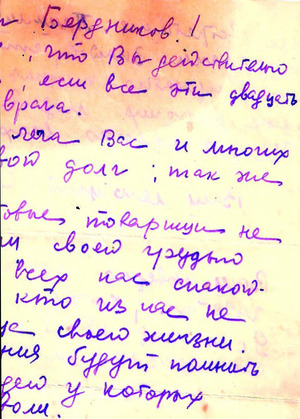 Бердников!
, что Вы действительно
, если все эти двадцать
врача.
Вас и многих
долг, так же
товарищи не
своей грудью
всех нас спакой-
кто из нас не
своего жизни.
ния будут помнить
у которых